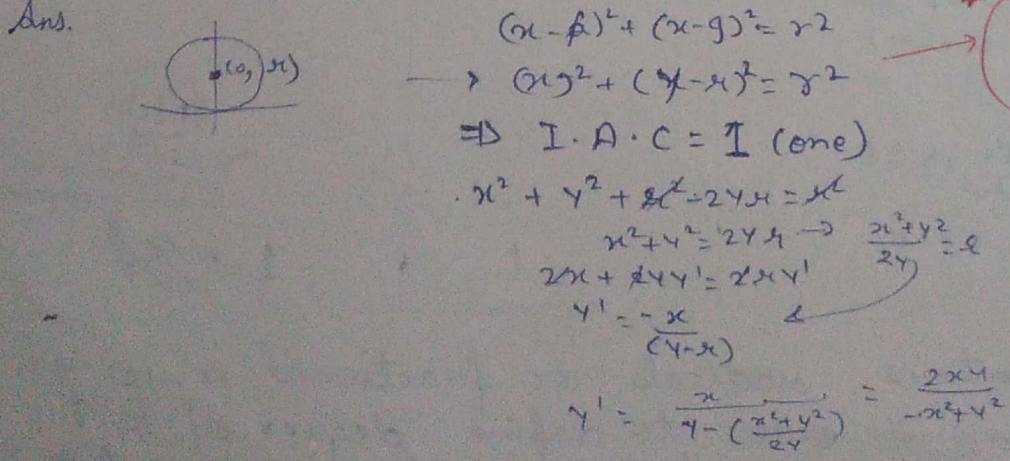 Ans.
(0, r)
(x-p)² + (x-g)² = r2
→ (x)² + (y-r)² = r2
⇒ I.A.C = I (one)
x² + y² + r² - 2yr = r²
x² + y² = 2yr → x²+y²/2y = r
2x + 2yy' = 2ry'
y' = -x/(y-r)
y' = x/y-(x²+y²/2y) = 2xy/-x²+y²